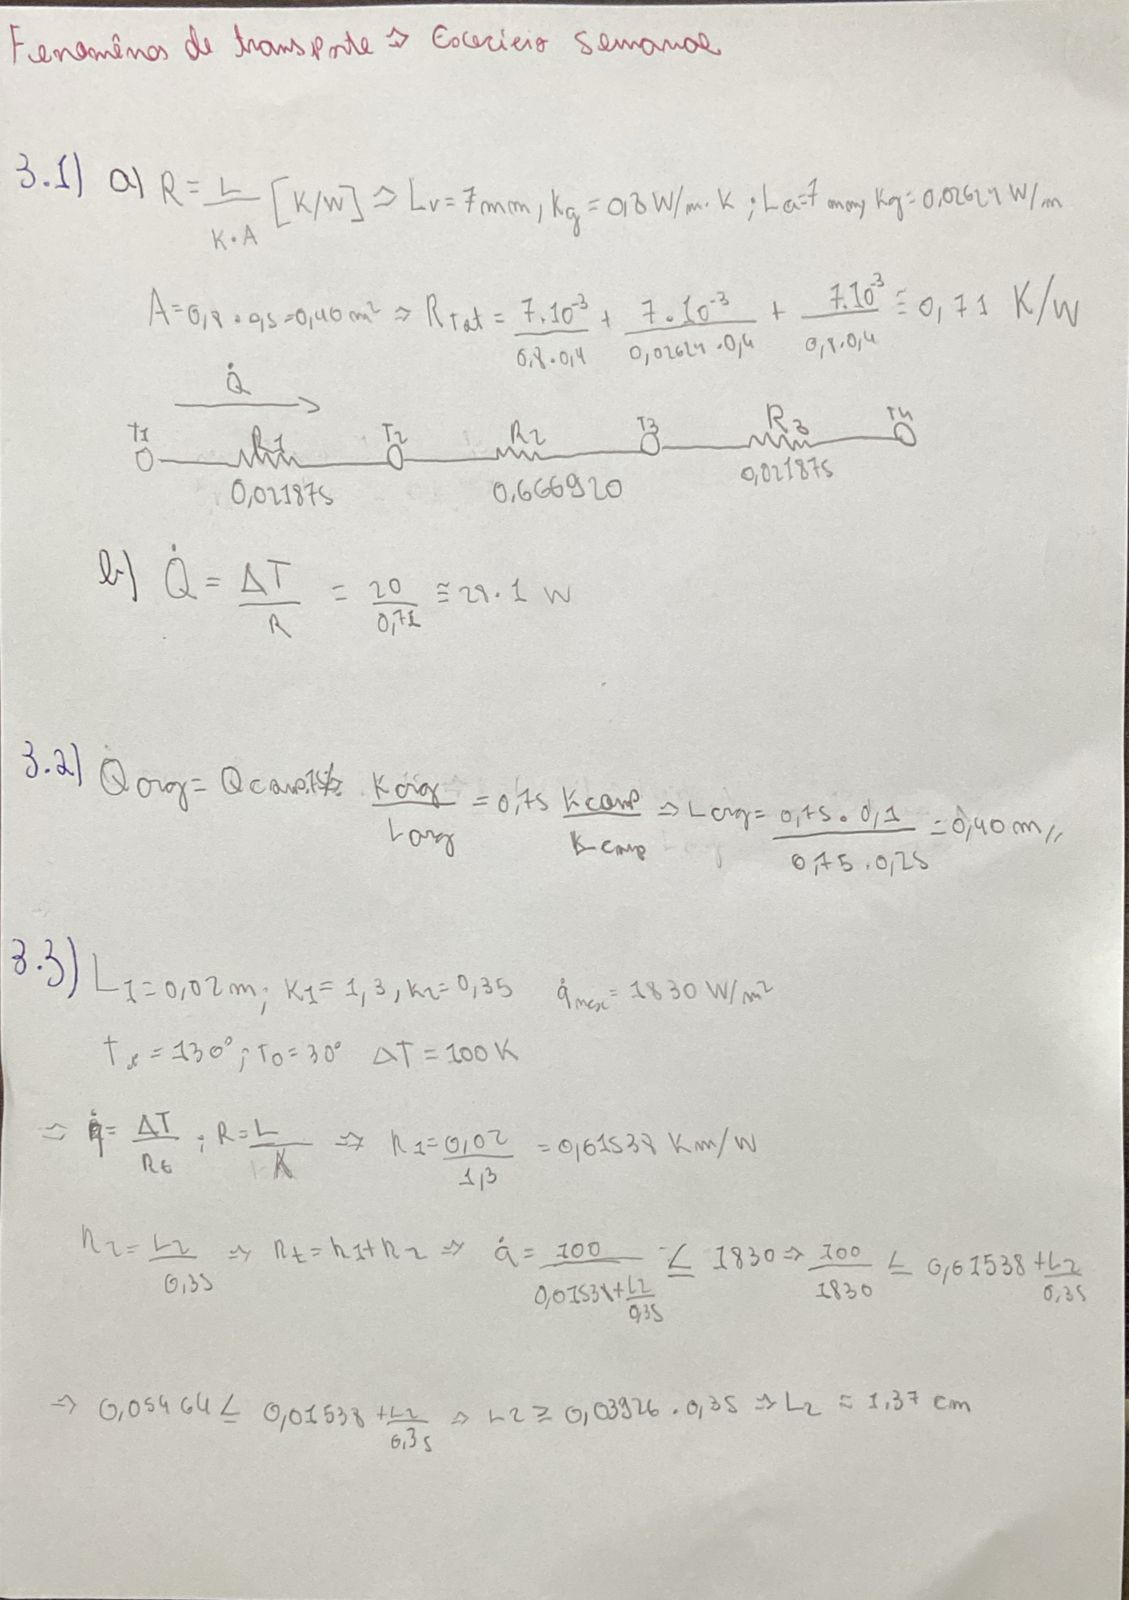 Fenomênos de transporte => Exercício semanal
3.1) a) R = L/K.A [K/W] => Lv = 7mm, Kg = 0,8 W/m.K ; La = 7 mm, Kg = 0,02624 W/m
A = 0,8 . 0,5 = 0,40 m² => RTot = 7.10^-3/0,8.0,4 + 7.10^-3/0,02624.0,4 + 7.10^-3/0,8.0,4 ≅ 0,71 K/W
Q̇
T1 R1 T2 R2 T3 R3 T4
0,021875 0,666920 0,021875
b) Q̇ = ΔT/R = 20/0,71 ≅ 28.1 W
3.2) Q̇org = Qcamp. Korg/Lorg = 0,75 Kcamp/Kcmp => Lorg = 0,75.0,1/0,75.0,25 = 0,40 m //
3.3) L1 = 0,02 m; K1 = 1,3, K2 = 0,35 q̇max = 1830 W/m²
= 130°; T0 = 30° ΔT = 100 K
=> q̇ = ΔT/Rt ; R = L/K => R1 = 0,02/1,3 = 0,01538 Km/W
R2 = L2/0,35 => Rt = R1 + R2 => q̇ = 100/0,01538 + L2/0,35 ≤ 1830 => 100/1830 ≤ 0,01538 + L2/0,35
=> 0,05464 ≤ 0,01538 + L2/0,35 => L2 ≥ 0,03926 . 0,35 => L2 = 1,37 cm